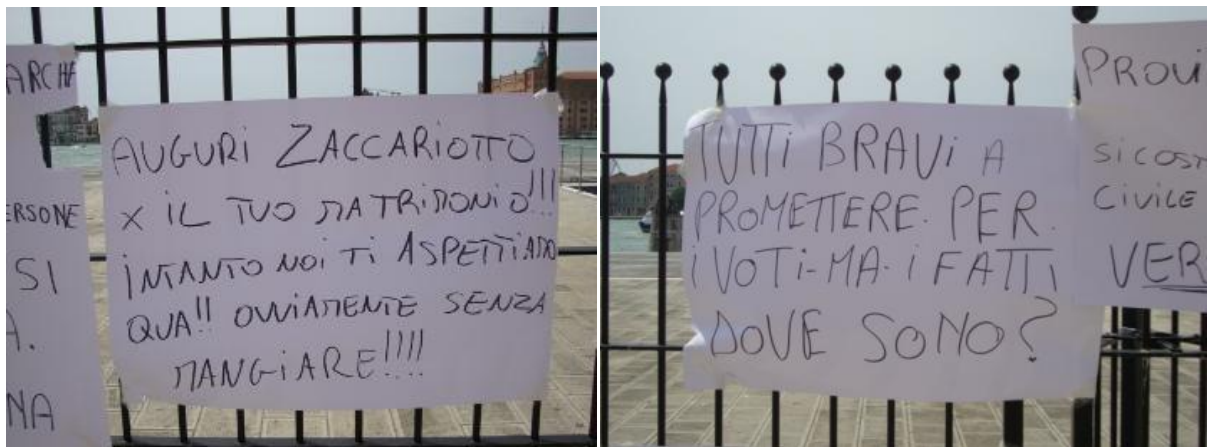 ARCHE
ERSONE
SI
A.
NA
AUGURI ZACCARIOTTO
X IL TUO MATRIMONIO!!!
INTANTO NOI TI ASPETTIAMO
QUA!! OVVIAMENTE SENZA
MANGIARE!!!!
TUTTI BRAVI A
PROMETTERE. PER.
i VOTI-MA-i FATTI
DOVE SONO?
PROVI
Si COST
CiViLE
VER